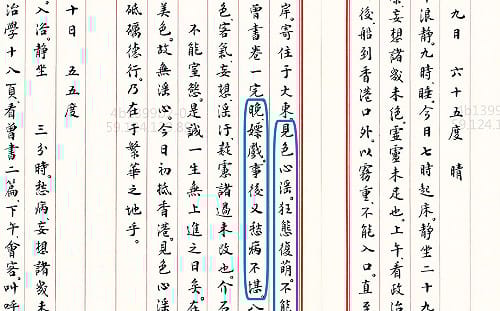 九日　六十五度　晴
浪靜。九時睡。今日七時起床。靜坐二十九
妄想諸幾未絕。靈靈未足也。上午看政治
後船到香港口外。以霧重。不能入口。直至
岸。寄住于大東。見色心淫。狂態復萌。不能
曾書卷一完。晚嫖戲。事後又愁病不堪。八
色、客氣、妄想、淫行、靈諸過未改也。介石
不能怨。是誠一生無上進之日矣。在
美色。故無淫心。今日初抵香港。見色心淫
砥礪德行。乃在于繁華之地乎。
十日　五五度
入浴。靜坐　三分時。愁病、妄想諸幾未
治學十八頁。看曾書二篇。下午會客。叫呼